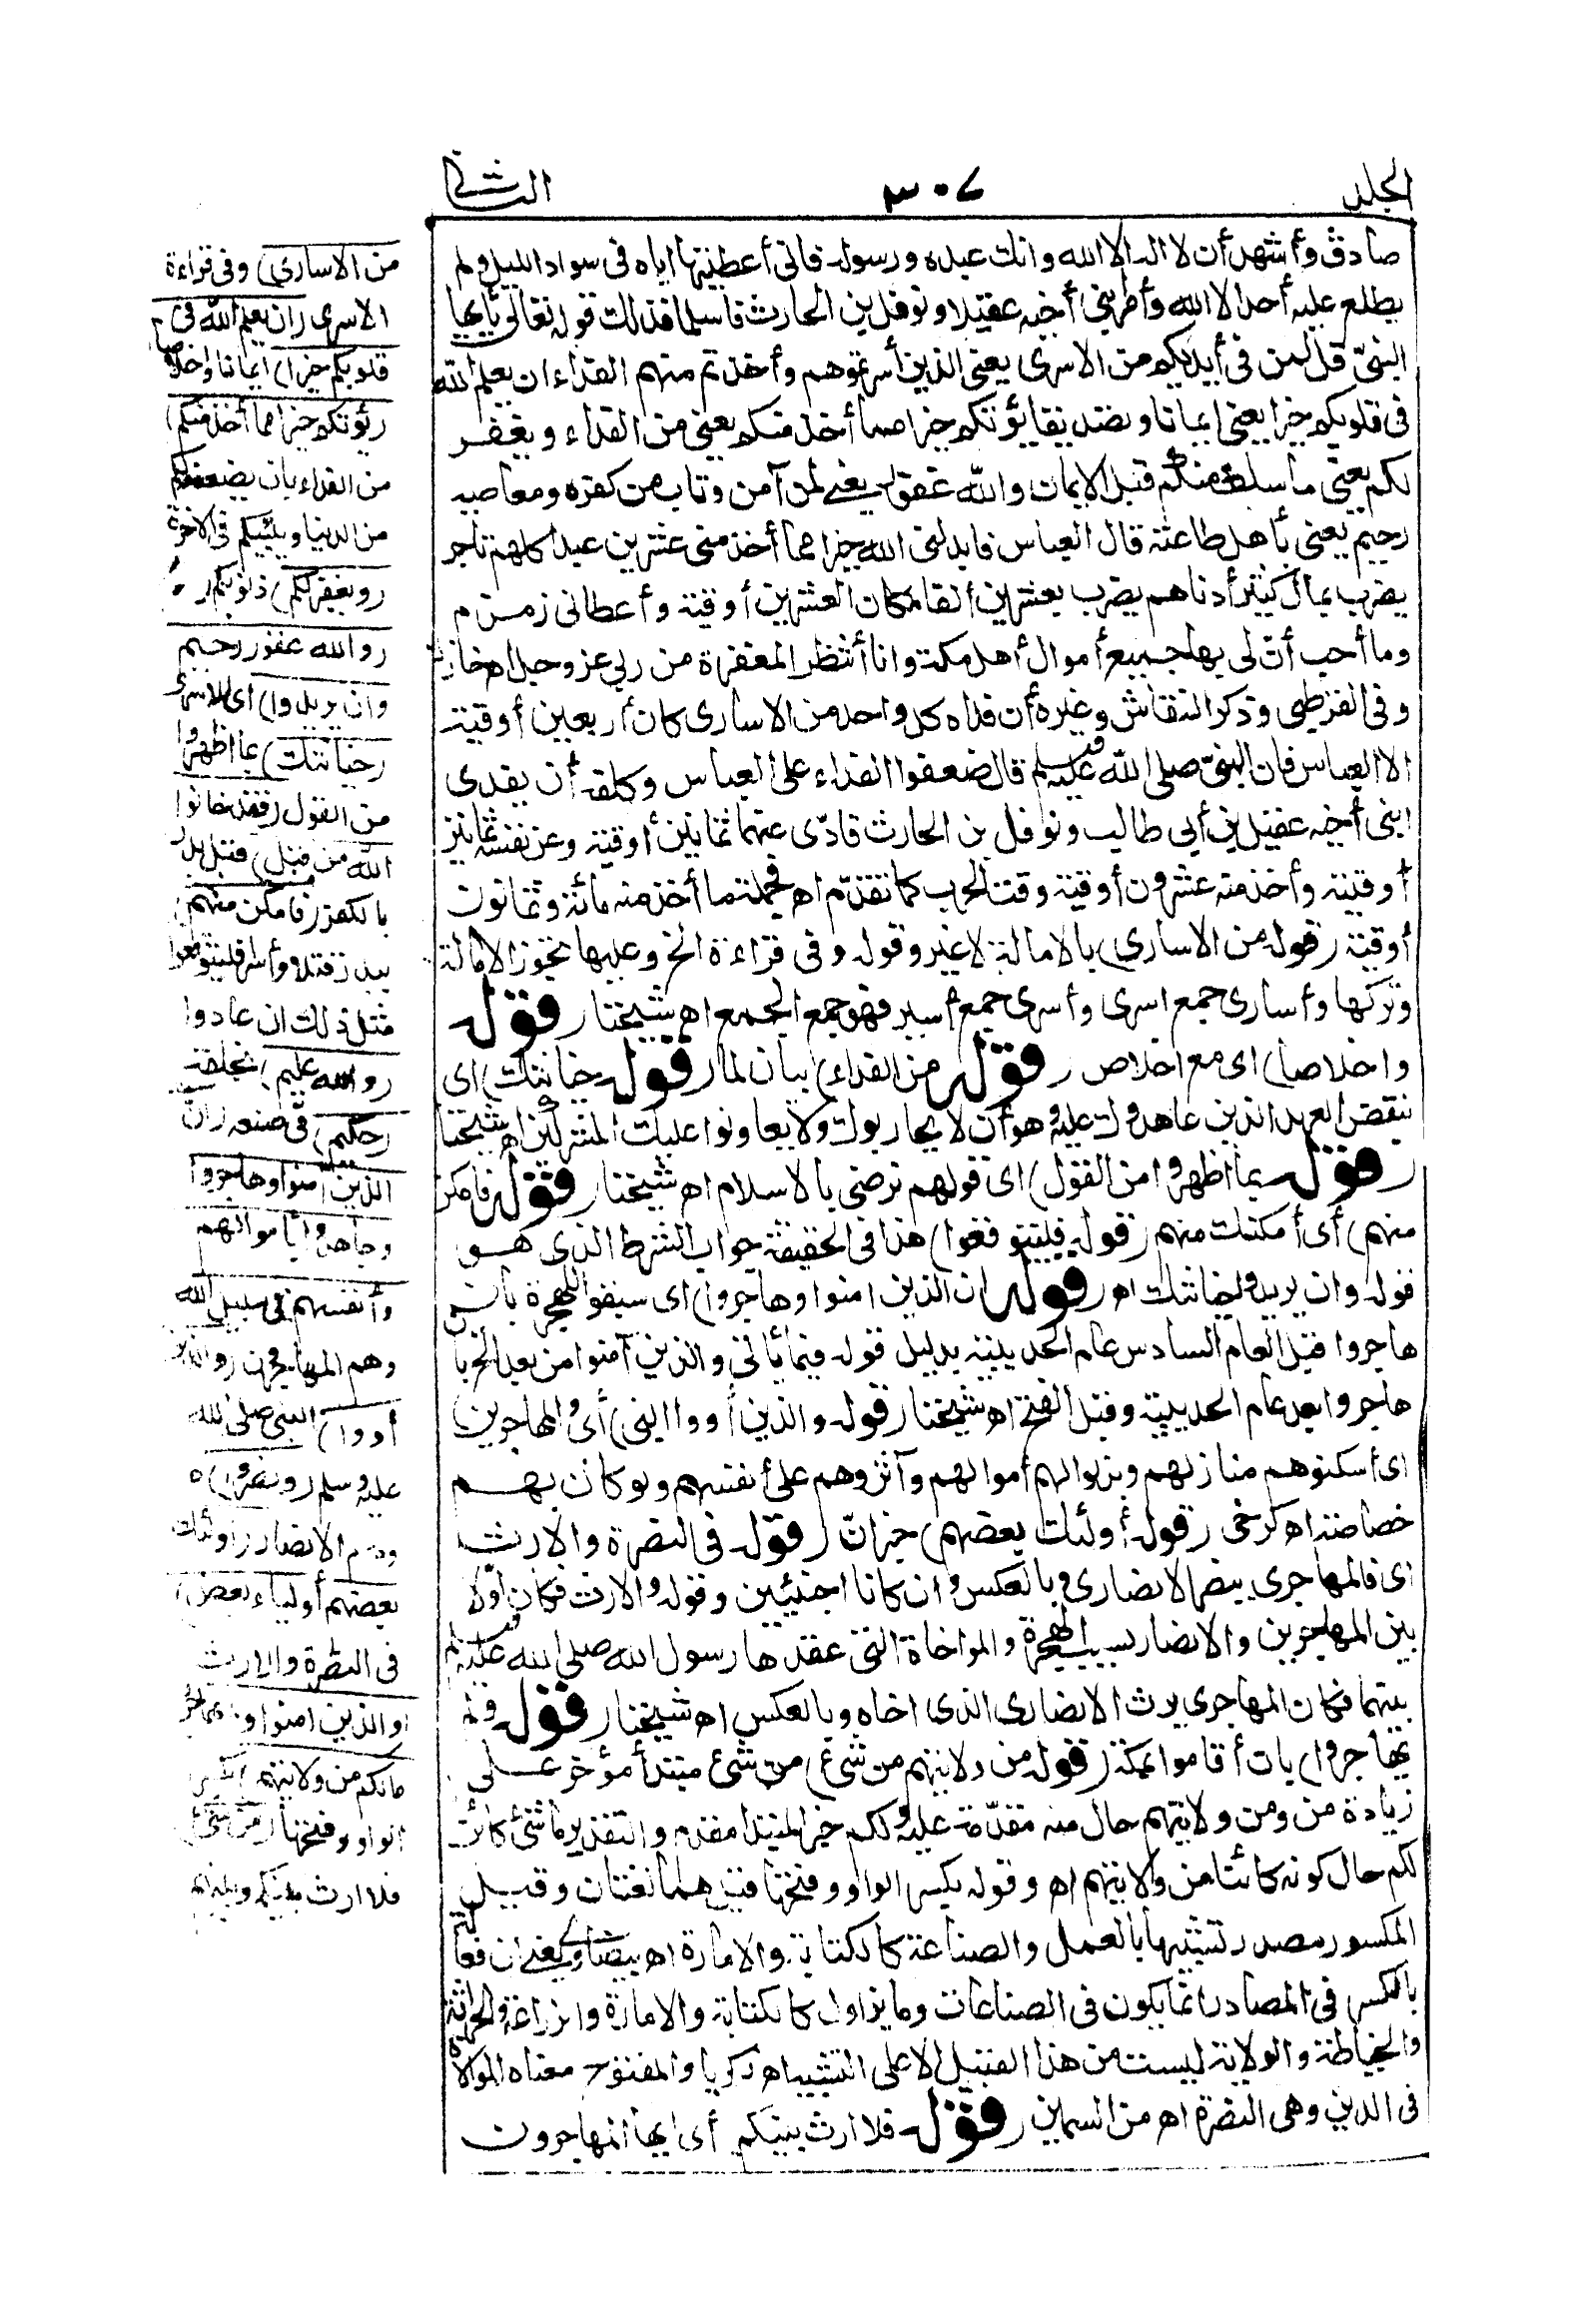 الجلد
٣٠٧
الثاني
صادق وأشهد أن لا اله الا الله وانك عبده ورسوله فاني أعطيتها اياه في سواد الليل ولم
يطلع عليه أحد الا الله وأمر بني أخيه عقيلا ونوفل بن الحارث فأسلما فذلك قوله تعالى يأيها
النبي قل لمن في أيديكم من الاسرى يعني الذين أسرتموهم وأخذتم منهم الفداء ان يعلم الله
في قلوبكم خيرا يعني ايمانا وتصديقا يؤتكم خيرا مما أخذ منكم يعني من الفداء ويغفر
لكم يعني ما سلف منكم قبل الايمان والله غفور يعني لمن آمن وتاب من كفره ومعاصيه
رحيم يعني بأهل طاعته قال العباس فابدلني الله خيرا مما أخذ مني عشرين عبدا كلهم تاجر
يضرب بمال كثير أدناهم يضرب بعشرين ألفا مكان العشرين أوقية وأعطاني زمزم
وما أحب أن لي بها جميع أموال أهل مكة وانا أنتظر المغفرة من ربي عز وجل اه خازن
وفي القرطبي وذكر النقاش وغيره أن فداء كل واحد من الاسارى كان أربعين أوقية
الا العباس فان النبي صلى الله عليه وسلم قال ضعفوا الفداء على العباس وكلفه أن يفدى
ابني أخيه عقيل بن أبي طالب ونوفل بن الحارث فأدّى عنهما ثمانين أوقية وعن نفسه ثمانين
أوقية وأخذ منه عشرون أوقية وقت الحرب كما تقدّم اه فجملة ما أخذ منه مائة وثمانون
أوقية (قوله من الاسارى) بالامالة لا غير وقوله وفي قراءة الخ وعليها تجوز الامالة
وتركها وأسارى جمع اسرى وأسرى جمع أسير فهو جمع الجمع اه شيخنا (قوله
واخلاصا) اى مع اخلاص (قوله من الفداء) بيان لما (قوله خيانتك) اى
نقض العهد الذين عاهدوك عليه وهو أن لا يحاربوك ولا يعاونوا عليك المشركين اه شيخنا
(قوله بما أظهروا من القول) اى قولهم نرضى بالاسلام اه شيخنا (قوله فامكن
منهم) أى أمكنك منهم (قوله فليتوقعوا) هذا في الحقيقة جواب الشرط الذى هو
قوله وان يريدوا خيانتك اه (قوله ان الذين امنوا وهاجروا) اى سبقوا للهجرة بأن
هاجروا قبل العام السادس عام الحديبية بدليل قوله فيما يأتي والذين آمنوا من بعد الخ بأن
هاجروا بعد عام الحديبية وقبل الفتح اه شيخنا (قوله والذين أووا النبي) أى والمهاجرين
اى أسكنوهم منازلهم وبذلوا لهم أموالهم وآثروهم على أنفسهم ولو كان بهم
خصاصة اه كرخى (قوله أولئك بعضهم) خبر ان (قوله في النصرة والارث
اى فالمهاجرى ينصر الانصارى وبالعكس وان كانا اجنبيين وقوله والارث فكان أولا
بين المهاجرين والانصار بسبب الهجرة والمواخاة التي عقدها رسول الله صلى الله عليه وسلم
بينهما فكان المهاجرى يرث الانصارى الذى اخاه وبالعكس اه شيخنا (قوله ولم
يهاجروا) بأن أقاموا بمكة (قوله من ولايتهم من شئ) من شئ مبتدأ مؤخر على
زيادة من ومن ولايتهم حال منه مقدّمة عليه ولكم خبر المبتدا مقدم والتقدير ما شئ كائن
لكم حال كونه كائنا من ولايتهم اه وقوله بكسر الواو وفتحها فقيل هما لغتان وقيل
المكسور مصدر تشبيها بالعمل والصناعة كالكتابة والامارة اه بيضاوى يعني ان فعالة
بالكسر في المصادر انما يكون في الصناعات وما يزاول كالكتابة والامارة والزراعة والحراثة
والخياطة والولاية ليست من هذا القبيل الا على التشبيه اه زكريا والمفتوح معناه الموالاة
في الدين وهي النصرة اه من السمين (قوله فلا ارث بينكم أى ايها المهاجرون
من الاسارى) وفي قراءة
الاسرى (ان يعلم الله في
قلوبكم خيرا) ايمانا واخلاصا
(يؤتكم خيرا مما أخذ منكم)
من الفداء بان يضعفه لكم
من الدنيا ويثيبكم في الاخرة
(ويغفر لكم) ذنوبكم
(والله غفور رحيم
وان يريدوا) اى الاسرى
(خيانتك) بما أظهروا
من القول (فقد خانوا
الله من قبل) قبل بدر
بالكفر (فامكن منهم)
ببدر قتلا وأسرا فليتوقعوا
مثل ذلك ان عادوا
(والله عليم) بخلقه
(حكيم) في صنعه (ان
الذين امنوا وهاجروا
وجاهدوا بأموالهم
وأنفسهم في سبيل الله
وهم المهاجرون (والذين
أووا) النبي صلى الله
عليه وسلم (ونصروا) ه
وهم الانصار (أولئك
بعضهم أولياء بعض)
في النصرة والارث
(والذين امنوا ولم يهاجروا
مالكم من ولايتهم) بكسر
الواو وفتحها (من شئ)
فلا ارث بينكم وبينهم